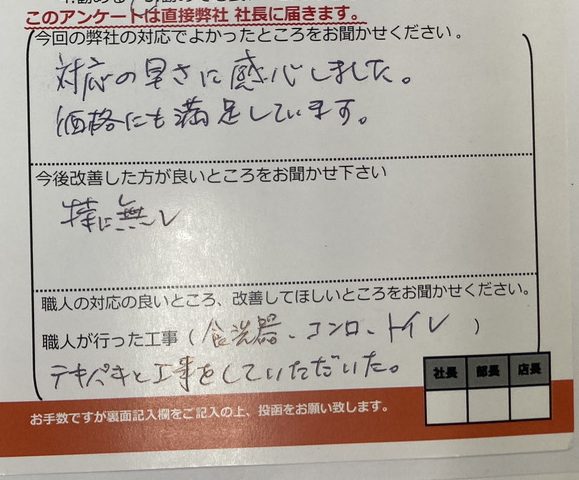 このアンケートは直接弊社 社長に届きます。
今回の弊社の対応でよかったところをお聞かせください。
対応の早さに感心しました。
価格にも満足しています。
今後改善した方が良いところをお聞かせ下さい
特に無し
職人の対応の良いところ、改善してほしいところをお聞かせください。
職人が行った工事（食洗器、コンロ、トイレ）
テキパキと工事をしていただいた。
社長 部長 店長
お手数ですが裏面記入欄をご記入の上、投函をお願い致します。